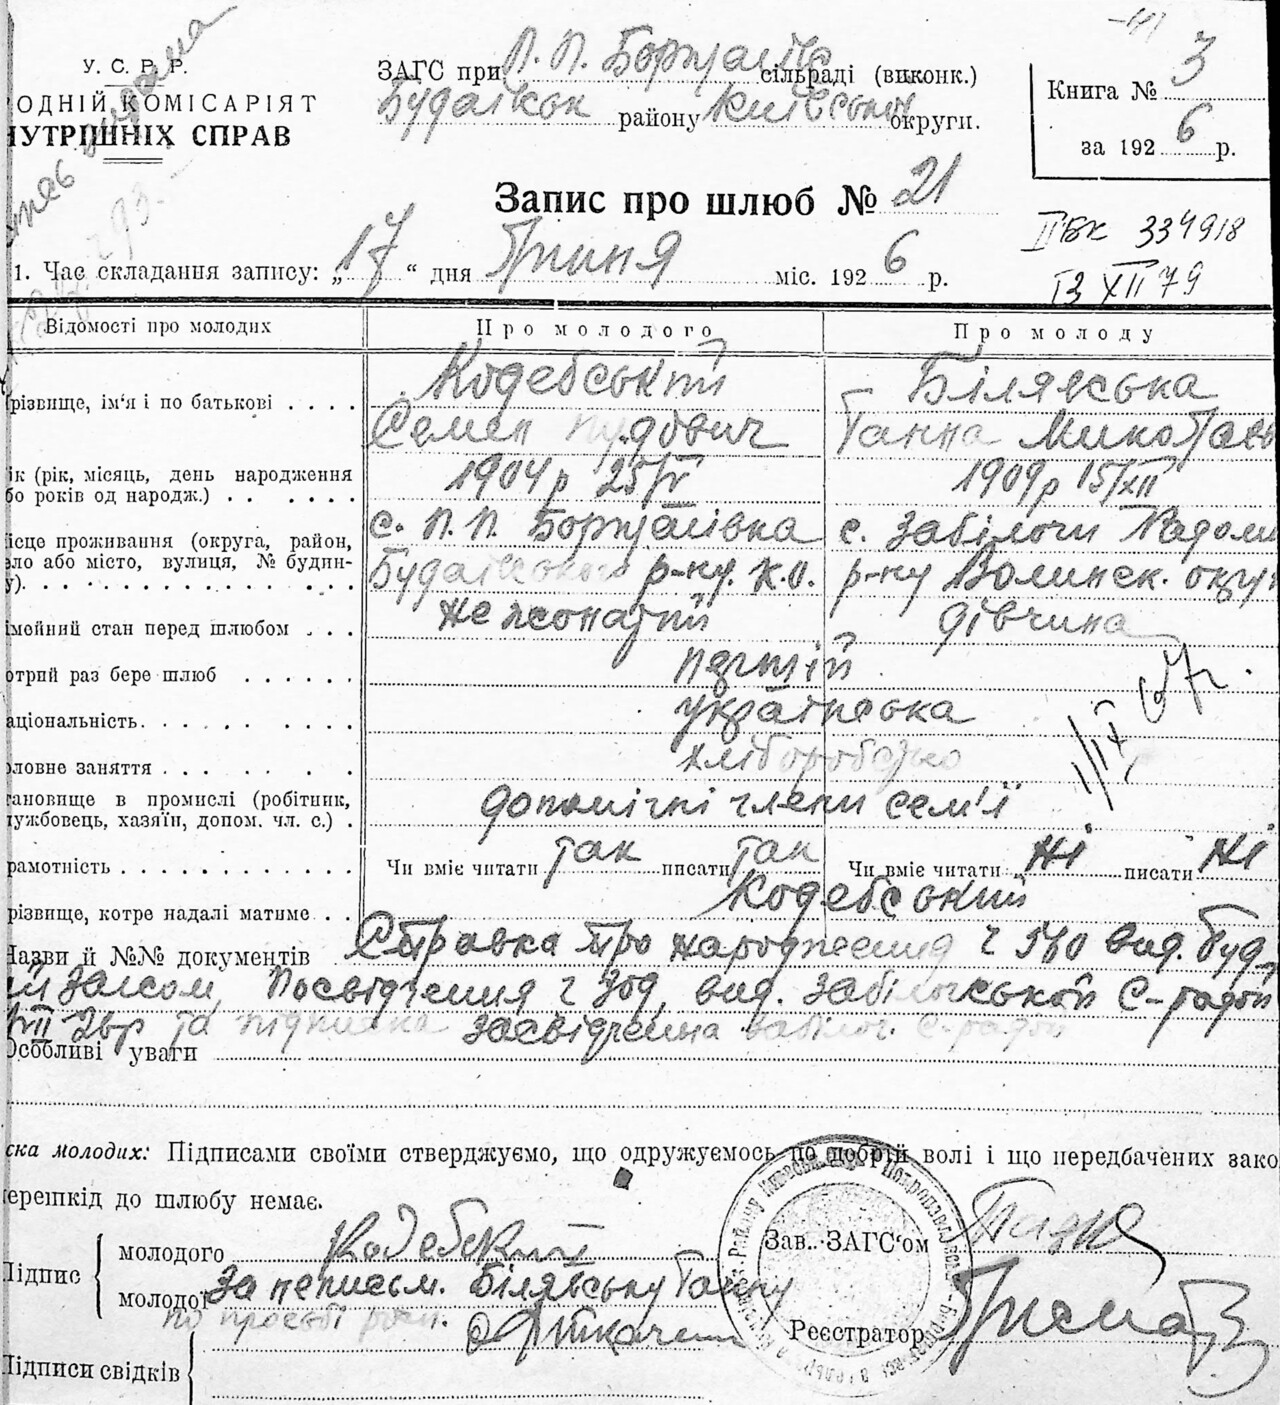 У. С. Р. Р.
ОДНІЙ КОМІСАРІЯТ
НУТРІШНІХ СПРАВ
видана
ЗАГС при П. П. Борщагівс сільраді (виконк.)
Будаївськ району Київськой округи.
Книга № 3
за 1926 р.
Запис про шлюб № 21
ІІ БК 334918
13 XII 79
1. Час складання запису: „17“ дня Грудня міс. 1926 р.
Відомості про молодих
Про молодого
Про молоду
різвище, ім'я і по батькові
Кодебський
Семен Иудович
Білявська
Ганна Миколаєв
ік (рік, місяць, день народження
бо років од народж.)
1904 р 25/IV
1909 р 15/XII
ісце проживання (округа, район,
ло або місто, вулиця, № будин-
у)
с. П. П. Борщагівка
Будаївського р-ну. К.О.
с. Забілочи Радоми
р-ну Волинск. окру
імейний стан перед шлюбом
не жонатий
дівчина
отрий раз бере шлюб
перший
аціональність
українська
ловне заняття
хліборобство
тановище в промислі (робітник,
ужбовець, хазяїн, допом. чл. с.)
допомічні члени сем'ї
рамотність
Чи вміє читати так писати так
Чи вміє читати ні писати ні
різвище, котре надалі матиме
Кодебський
Назви й №№ документів Справка про народження ч 560 вид. Буд
Загсом, Посвідчення ч 308, вид. Забілочської С-радой
26р та підписка засвідчена Забілоч. С-радой
Особливі уваги
ска молодих: Підписами своїми стверджуємо, що одружуємось по добрій волі і що передбачених зако
ерешкід до шлюбу немає.
Підпис
молодого Кодебский
молодої За неписьм. Білявську Ганну
по просьбі розп.
Зав. ЗАГС'ом
Реєстратор
Підписи свідків